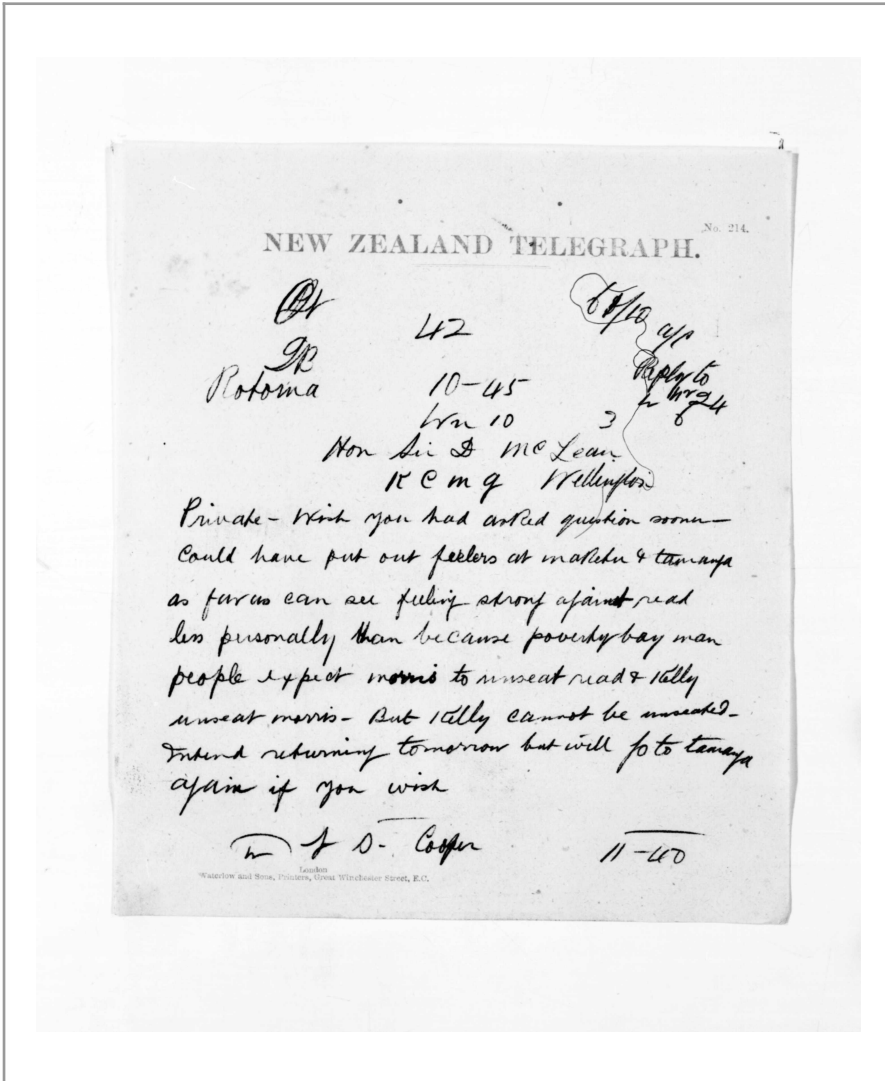 No. 214.
NEW ZEALAND TELEGRAPH.
42
a/c
Rotoma 10-45 Reply to
Wn 10 3
Hon Sir D McLean
K C M G Wellington
Private - Wish you had asked question sooner -
Could have put out feelers at maketu & tamanga
as far as can see feeling strong against read
less personally than because poverty bay man
people expect morris to unseat read & Kelly
unseat morris - But Kelly cannot be unseated -
Intend returning tomorrow but will go to tamanga
again if you wish
D - Cooper 11-40
London
Waterlow and Sons, Printers, Great Winchester Street, E.C.